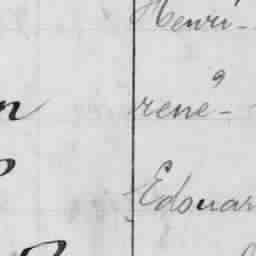 Henri-
rené-
Edouar